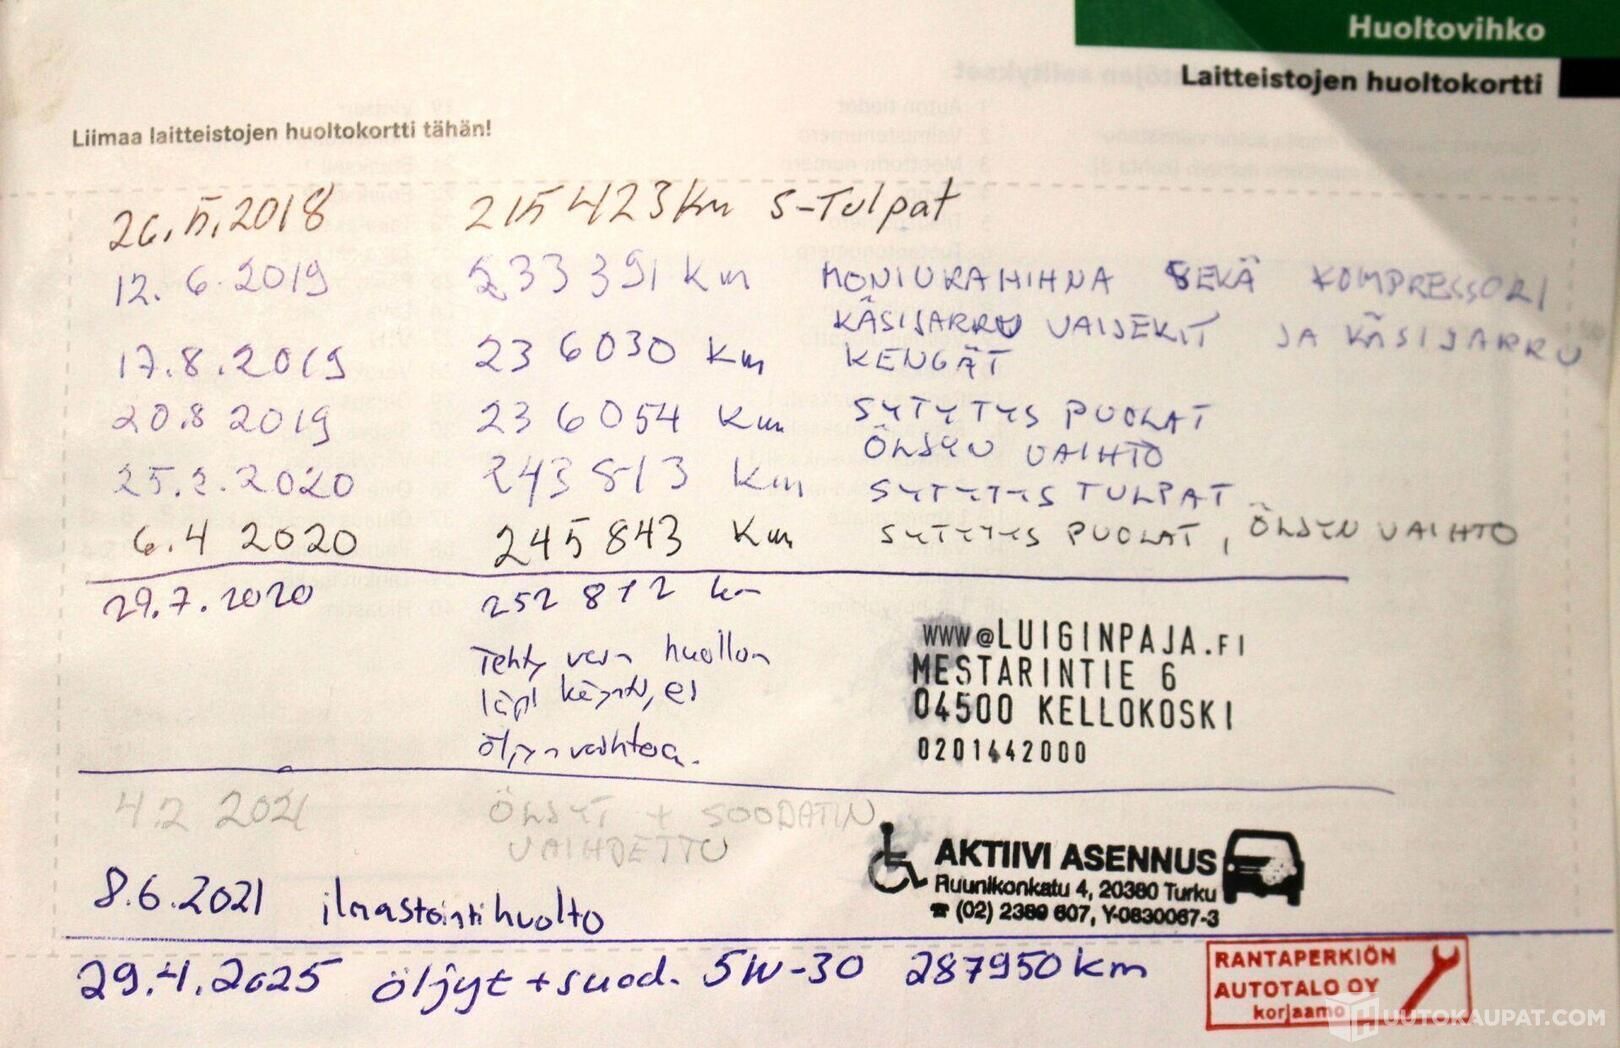 Huoltovihko
Laitteistojen huoltokortti
Liimaa laitteistojen huoltokortti tähän!
26.5.2018 215423 km S-Tulpat
12.6.2019 233391 km MONIURAHIHNA SEKÄ KOMPRESSORI
KÄSIJARRU VAIJERIT JA KÄSIJARRU
17.8.2019 236030 km KENGÄT
20.8 2019 236054 km SYTYTYS PUOLAT
ÖLJYN VAIHTO
25.2.2020 243813 km SYTYTYS TULPAT
6.4 2020 245843 km SYTYTYS PUOLAT, ÖLJYN VAIHTO
29.7.2020 252812 km
Tehty vain huollon
läpi käynti, ei
öljynvaihtoa.
www@LUIGINPAJA.FI
MESTARINTIE 6
04500 KELLOKOSKI
0201442000
4.2 2021 ÖLJYT + SOODATIN
VAIHDETTU
8.6.2021 ilmastointihuolto
AKTIIVI ASENNUS
Ruunikonkatu 4, 20380 Turku
☎ (02) 2389 607, Y-0830067-3
29.4.2025 öljyt + suod. 5W-30 287950 km
RANTAPERKIÖN
AUTOTALO OY
korjaamo
HUUTOKAUPAT.COM